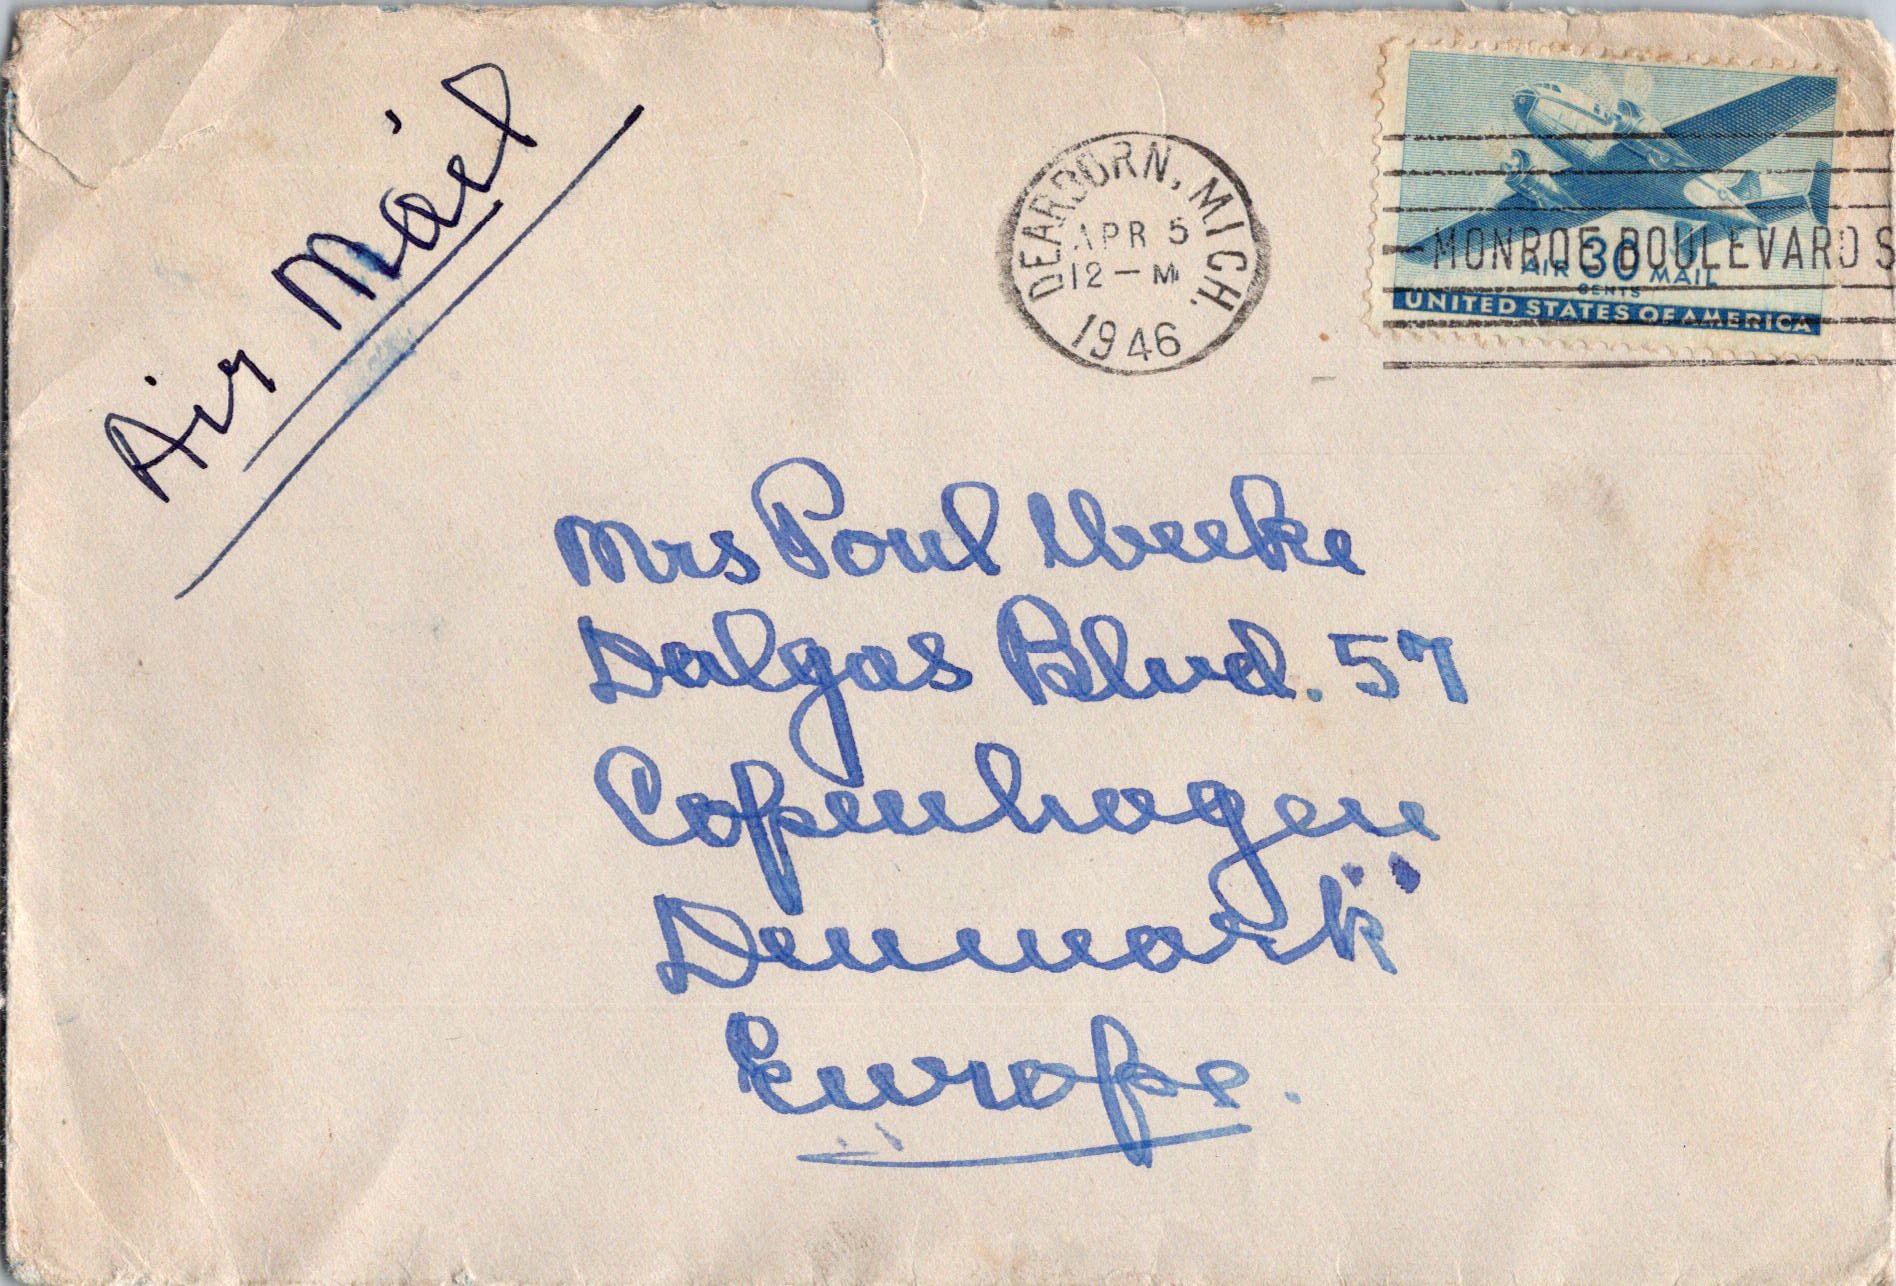 Air Mail
DEARBORN, MICH.
APR 5
12 - M
1946
MONROE BOULEVARD S
AIR 30 MAIL
CENTS
UNITED STATES OF AMERICA
Mrs Poul
Dalgas Blvd. 57
Copenhagen
Denmark
Europe.